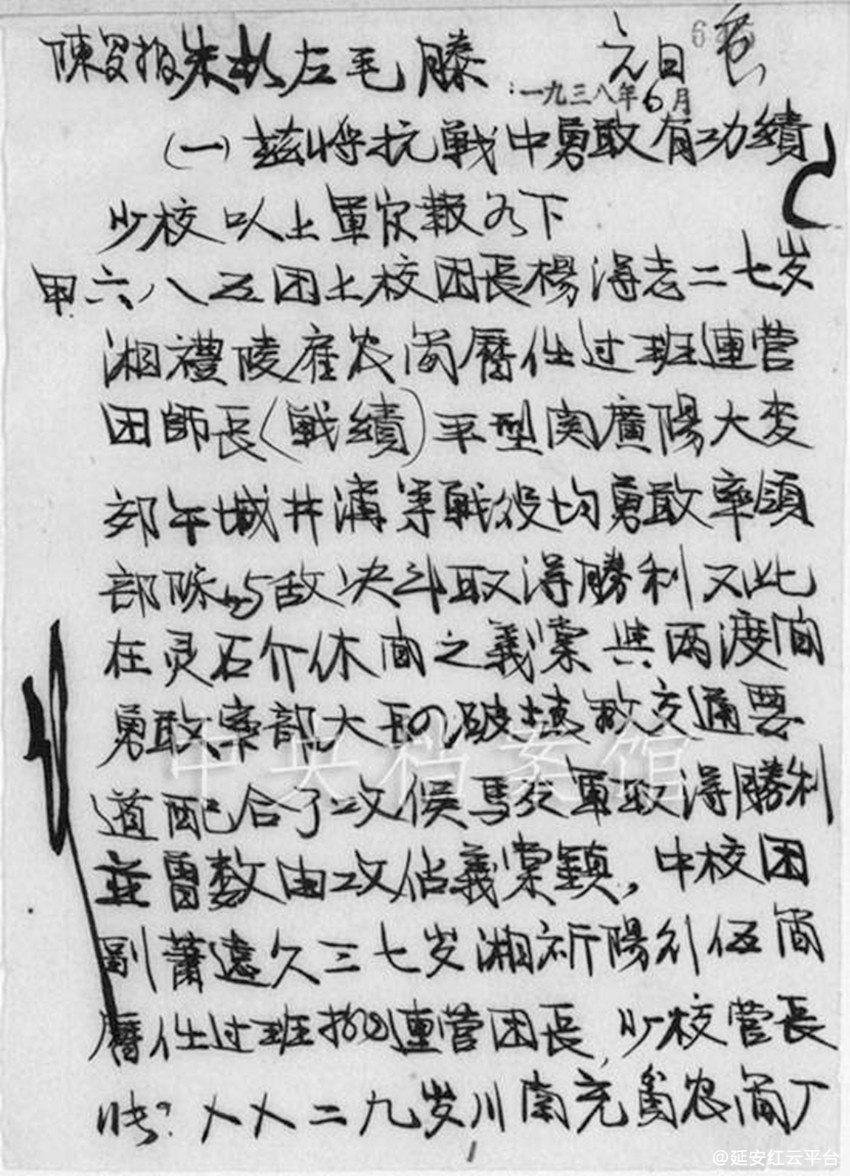 陳罗报朱彭左毛滕 元日
一九三八年6月
(一)兹将抗戰中勇敢有功績
少校以上軍官報如下
甲六八五团上校团長楊得志二七岁
湘禮陵雇农简曆任过班連营
团師長(戰績)平型関廣陽大麥
郊午城井溝等戰役均勇敢率領
部隊与敌决斗取得勝利又此
在灵石介休间之義棠與两渡间
勇敢率部大胆的破壞敌交通要
道配合了攻侯馬友軍取得勝利
並曾数由攻佔義棠鎮,中校团
副蕭遠久三七岁湘祈陽行伍简
曆任过班排連营团長,少校营長
?乂乂二九岁川南充貧农简
1
中央档案馆
@延安红云平台